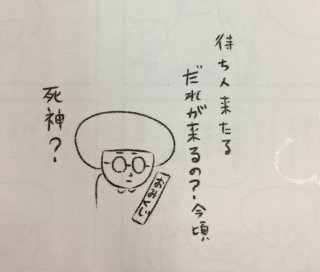 待ち人来たる
だれが来るの?今頃
死神?
おみくじ